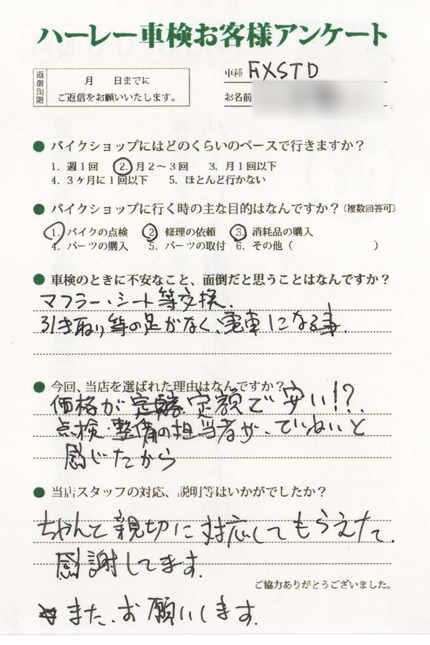 ハーレー車検お客様アンケート
返信期限
月　日までに
ご返信をお願いいたします。
車種 FXSTD
お名前
● バイクショップにはどのくらいのペースで行きますか？
1. 週1回　2. 月2～3回　3. 月1回以下
4. 3ヶ月に1回以下　5. ほとんど行かない
● バイクショップに行く時の主な目的はなんですか？（複数回答可）
1. バイクの点検　2. 修理の依頼　3. 消耗品の購入
4. パーツの購入　5. パーツの取付　6. その他（　　　）
● 車検のときに不安なこと、面倒だと思うことはなんですか？
マフラー・シート等交換.
引き取り等の足がなく、電車になる事.
● 今回、当店を選ばれた理由はなんですか？
価格が 定額で安い!?.
点検・整備の担当者が、ていねいと
感じたから
● 当店スタッフの対応、説明等はいかがでしたか？
ちゃんと親切に対応してもらえた.
感謝してます.
ご協力ありがとうございました。
また、お願いします.